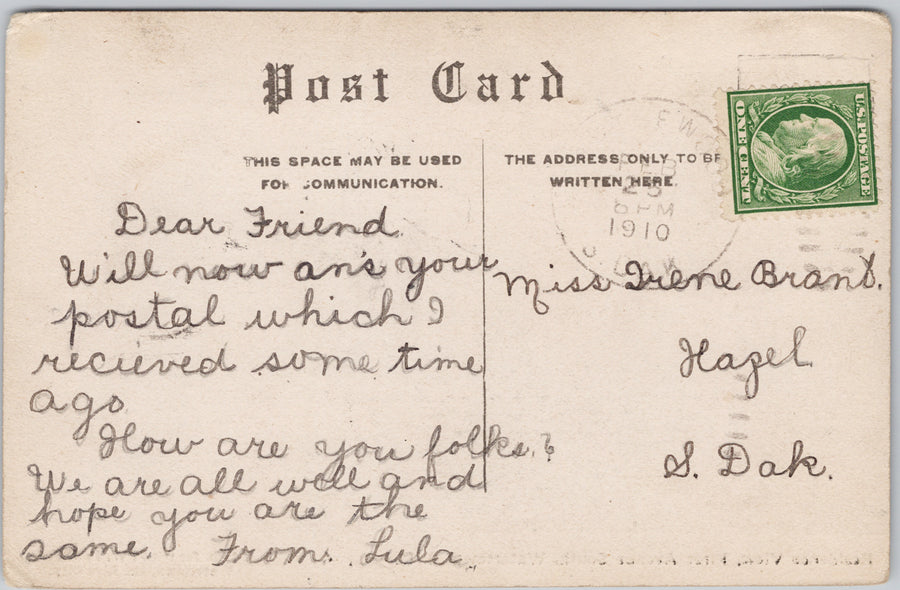 Post Card
THIS SPACE MAY BE USED
FOR COMMUNICATION.
THE ADDRESS ONLY TO BE
WRITTEN HERE.
U.S. POSTAGE
ONE CENT
23
6 PM
1910
Dear Friend
Will now an's your
postal which I
recieved some time
ago
How are you folks?
We are all well and
hope you are the
same. From. Lula
Miss Irene Brant.
Hazel
S. Dak.